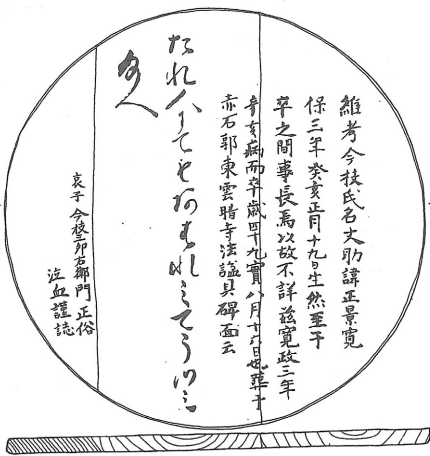 維考今枝氏名丈助諱正景寛
保三年癸亥正月十九日生然至于
卒之間事長焉以故不詳茲寛政三年
辛亥病而卒歳四十九實八月十六日也葬于
赤石郭東雲晴寺法諡具碑面云
たれ人にてもあはれミて
給へ
哀子 今枝夘右衛門 正俗
泣血謹誌